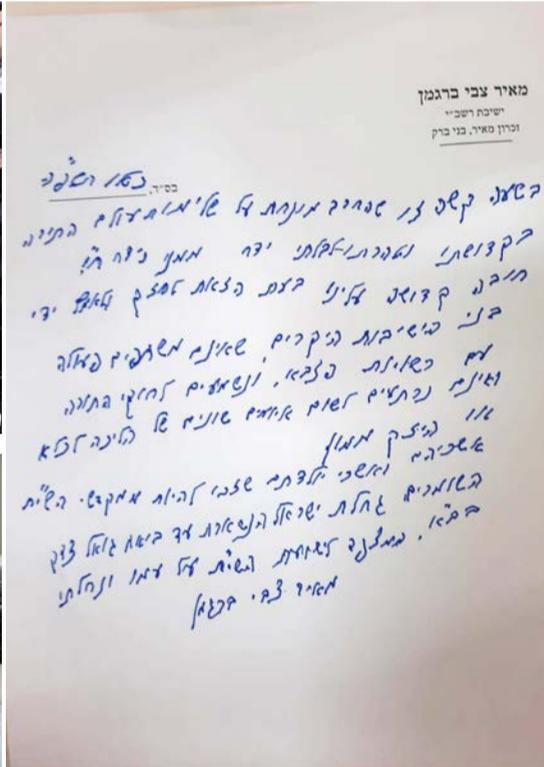 מאיר צבי ברגמן
ישיבת רשב״י
זכרון מאיר, בני ברק
בס״ד,
בשעה קשה זו שהחרב מונחת על שלימות עולם התורה
בקדושתו וטהרתו לבלתי ידח ממנו נידח ח״ו
חובה קדושה עלינו בעת הזאת לחזק ולאמץ ידי
בני הישיבות היקרים, שאינם משתפים פעולה
עם רשויות הצבא, ונשמעים לחוקי התורה
ואינם נרתעים לשום איומים שונים של הליכה לכלא
או היזק ממון
אשריהם ואשרי יולדתם שזכו להיות ממקדשי הש״ית
השומרים גחלת ישראל הנשארת עד ביאת גואל צדק
בב״א. המצפה לישועת הש״ית על עמו ונחלתו
מאיר צבי ברגמן